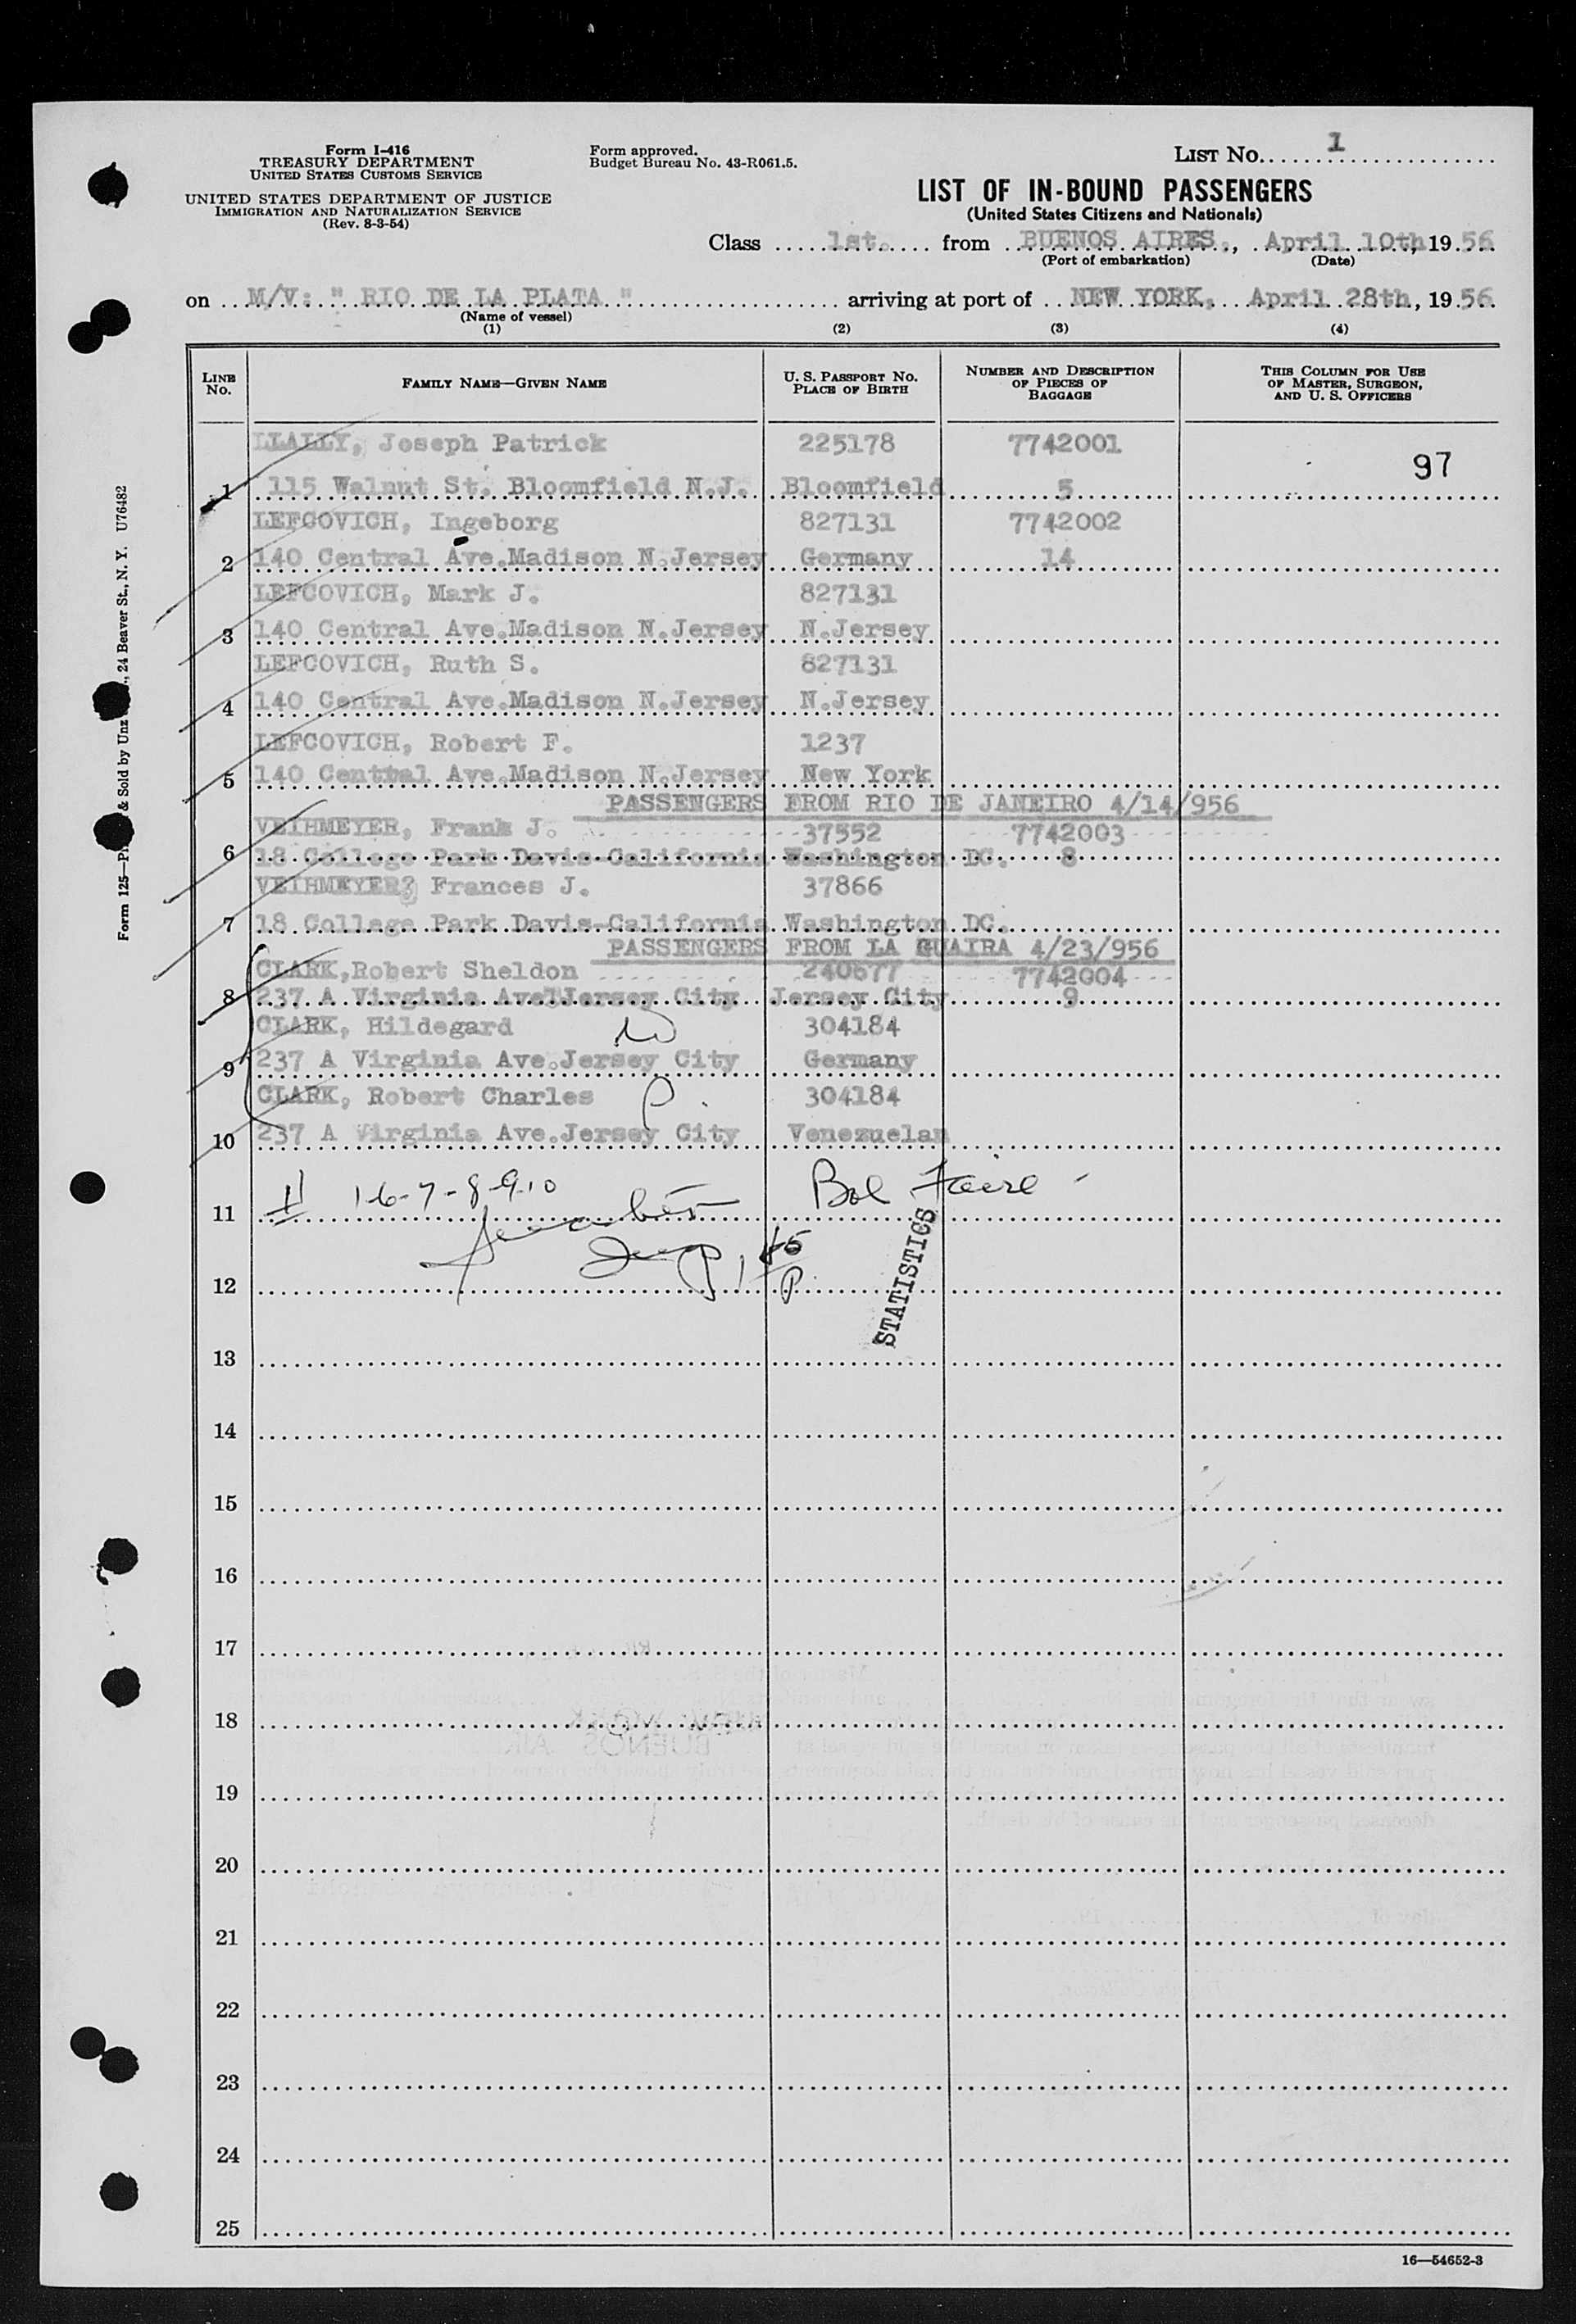 Form I-416
TREASURY DEPARTMENT
UNITED STATES CUSTOMS SERVICE
UNITED STATES DEPARTMENT OF JUSTICE
IMMIGRATION AND NATURALIZATION SERVICE
(Rev. 8-3-54)
Form approved.
Budget Bureau No. 43-R061.5.
LIST NO. 1
LIST OF IN-BOUND PASSENGERS
(United States Citizens and Nationals)
Class 1st. from BUENOS AIRES, April 10th, 1956
(Port of embarkation) (Date)
on M/V: " RIO DE LA PLATA " arriving at port of NEW YORK, April 28th, 1956
(Name of vessel)
(1) (2) (3) (4)
LINE No. FAMILY NAME—GIVEN NAME U. S. PASSPORT NO. PLACE OF BIRTH NUMBER AND DESCRIPTION OF PIECES OF BAGGAGE THIS COLUMN FOR USE OF MASTER, SURGEON, AND U. S. OFFICERS
LLALLY, Joseph Patrick 225178 7742001
97
1 115 Walnut St. Bloomfield N.J. Bloomfield 5
LEFCOVICH, Ingeborg 827131 7742002
2 140 Central Ave.Madison N.Jersey Germany 14
LEFCOVICH, Mark J. 827131
3 140 Central Ave.Madison N.Jersey N.Jersey
LEFCOVICH, Ruth S. 827131
4 140 Central Ave.Madison N.Jersey N.Jersey
LEFCOVICH, Robert F. 1237
5 140 Central Ave.Madison N.Jersey New York
PASSENGERS FROM RIO DE JANEIRO 4/14/956
VEIHMEYER, Frank J. 37552 7742003
6 18 College Park Davis-California Washington DC. 8
VEIHMEYER? Frances J. 37866
7 18 College Park Davis-California Washington DC.
PASSENGERS FROM LA GUAIRA 4/23/956
CLARK,Robert Sheldon 240677 7742004
8 237 A Virginia Ave.Jersey City Jersey City 9
CLARK, Hildegard 304184
9 237 A Virginia Ave.Jersey City Germany
CLARK, Robert Charles P. 304184
10 237 A Virginia Ave.Jersey City Venezuelan
1-6-7-8-9-10
11
12
STATISTICS
13
14
15
16
17
18
19
20
21
22
23
24
25
16—54652-3
24 Beaver St., N. Y. U76482
Form 125
& Sold by Unz